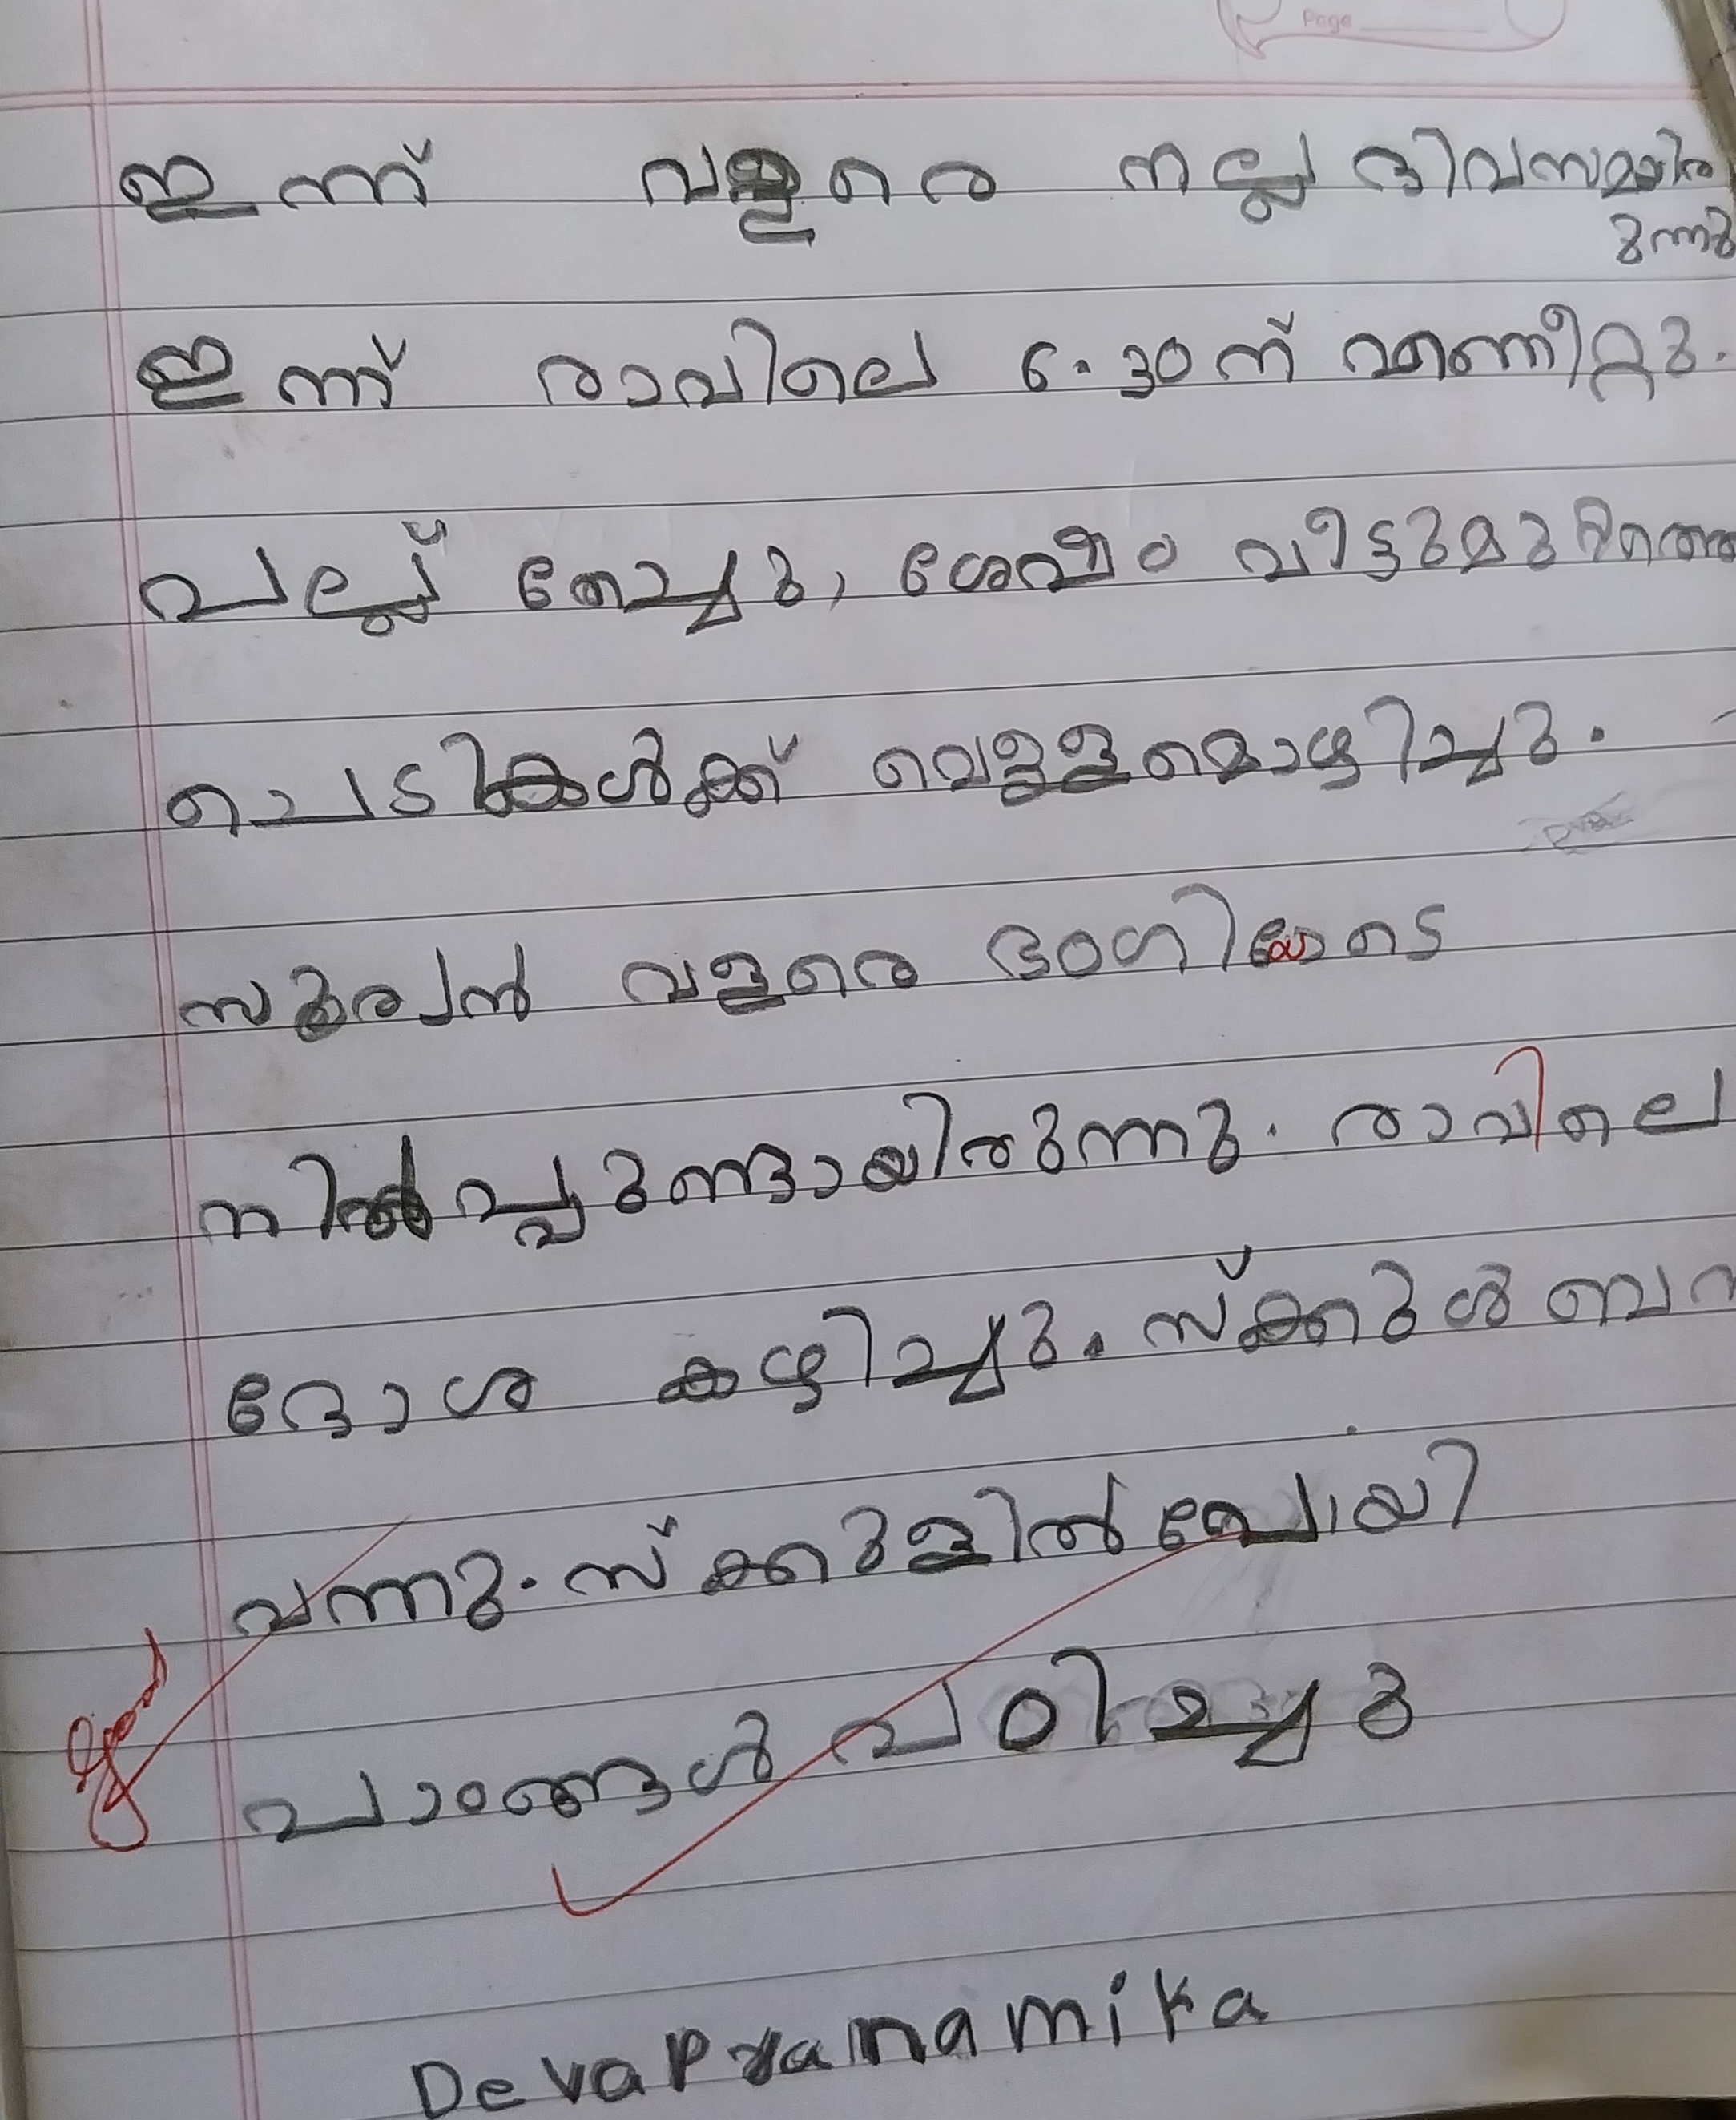 Page
ഇന്ന് വളരെ നല്ല ദിവസമായി
രുന്നു
ഇന്ന് രാവിലെ 6.30ന് എണീറ്റു.
പല്ല് തേച്ചു, ശേഷം വീട്ടുമുറ്റത്തെ
ചെടികൾക്ക് വെള്ളമൊഴിച്ചു.
സൂര്യൻ വളരെ ഭംഗിയോടെ
നിൽപ്പുണ്ടായിരുന്നു. രാവിലെ
ദോശ കഴിച്ചു. സ്ക്കൂൾ ബസ്
വന്നു. സ്ക്കൂളിൽ പോയി
പാഠങ്ങൾ പഠിച്ചു
good
Devapranamika